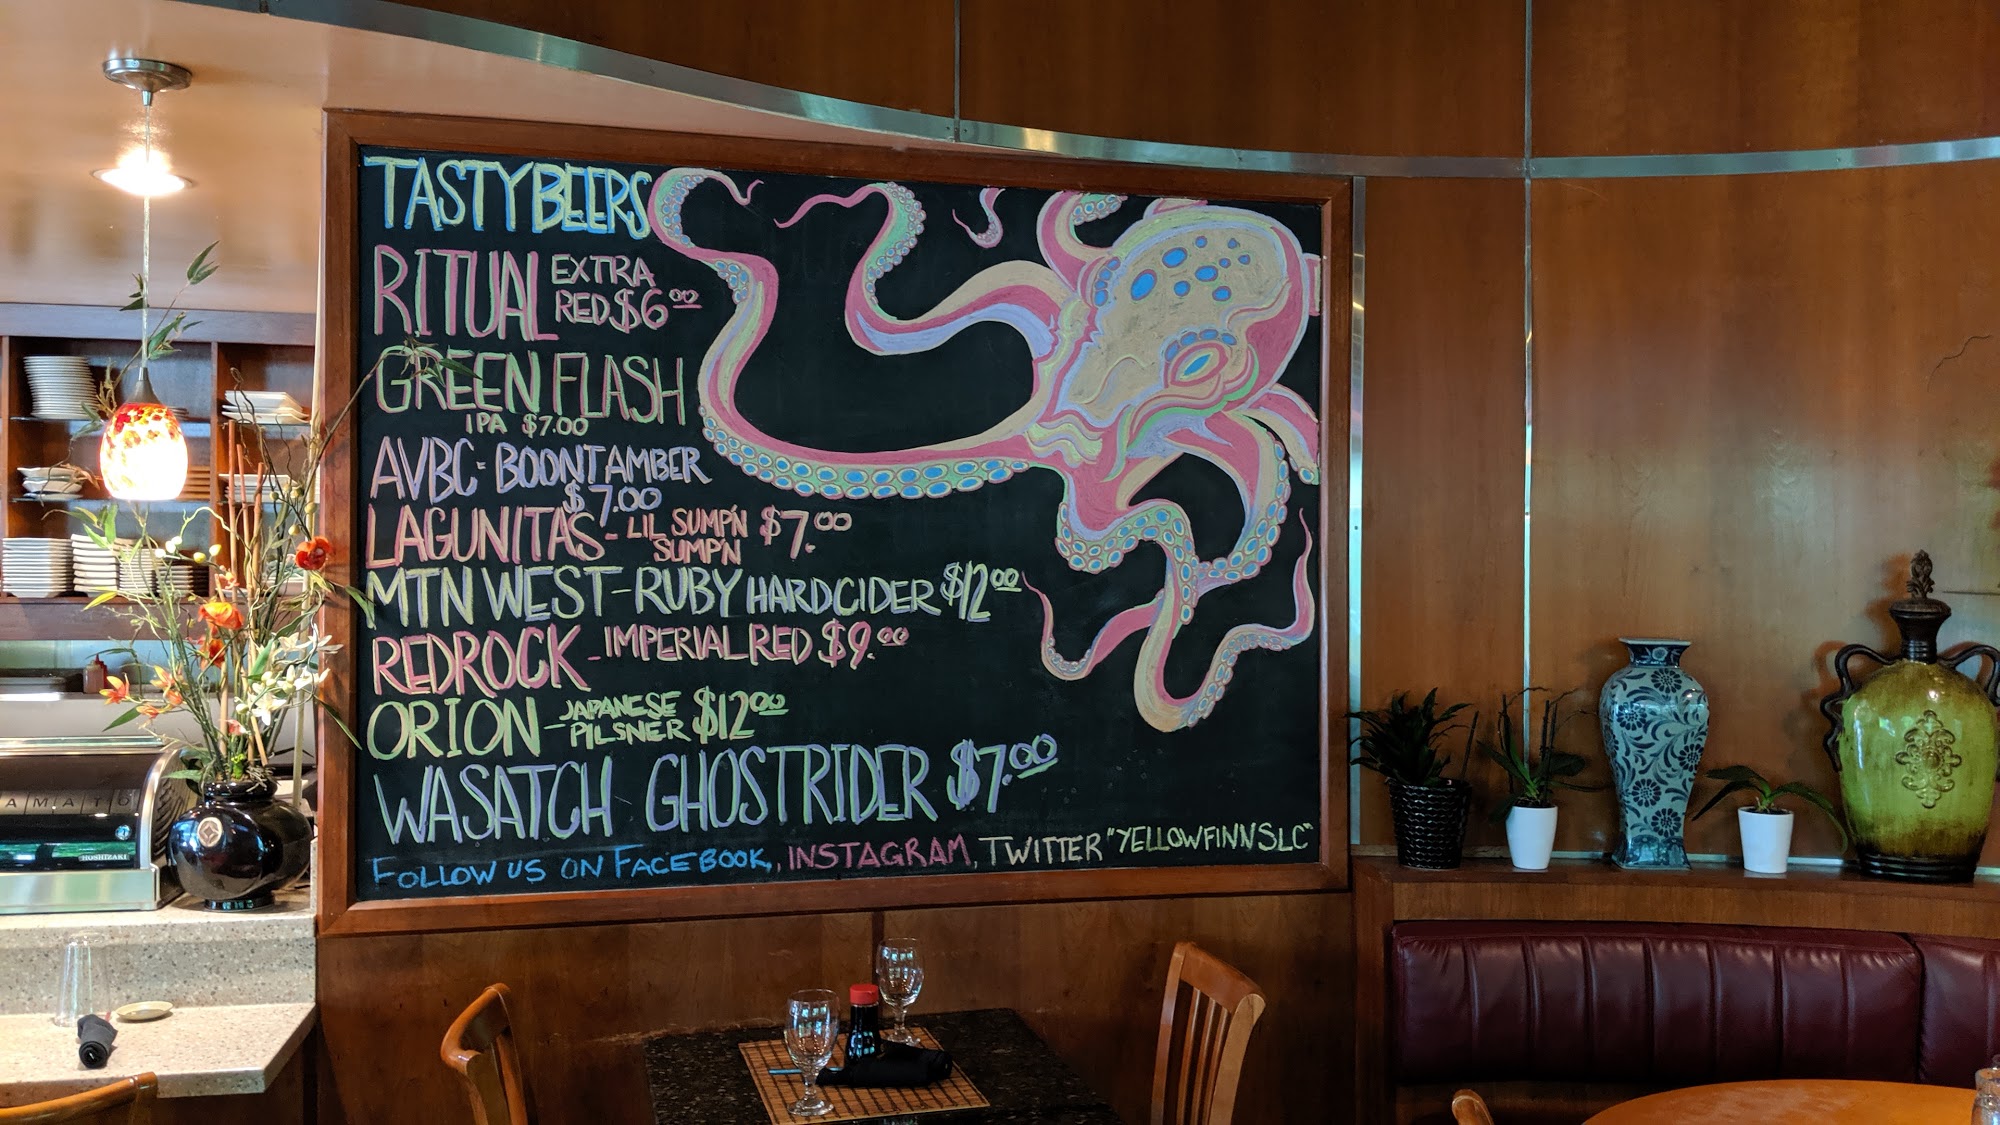 TASTY BEERS
RITUAL EXTRA
RED $6.00
GREEN FLASH
IPA $7.00
AVBC - BOONT AMBER
$7.00
LAGUNITAS - LIL SUMP'N $7.00
SUMP'N
MTN WEST - RUBY HARD CIDER $12.00
REDROCK - IMPERIAL RED $9.00
ORION - JAPANESE $12.00
PILSNER
WASATCH GHOSTRIDER $7.00
FOLLOW US ON FACEBOOK, INSTAGRAM, TWITTER "YELLOWFINNSLC"
AMATO
HOSHIZAKI